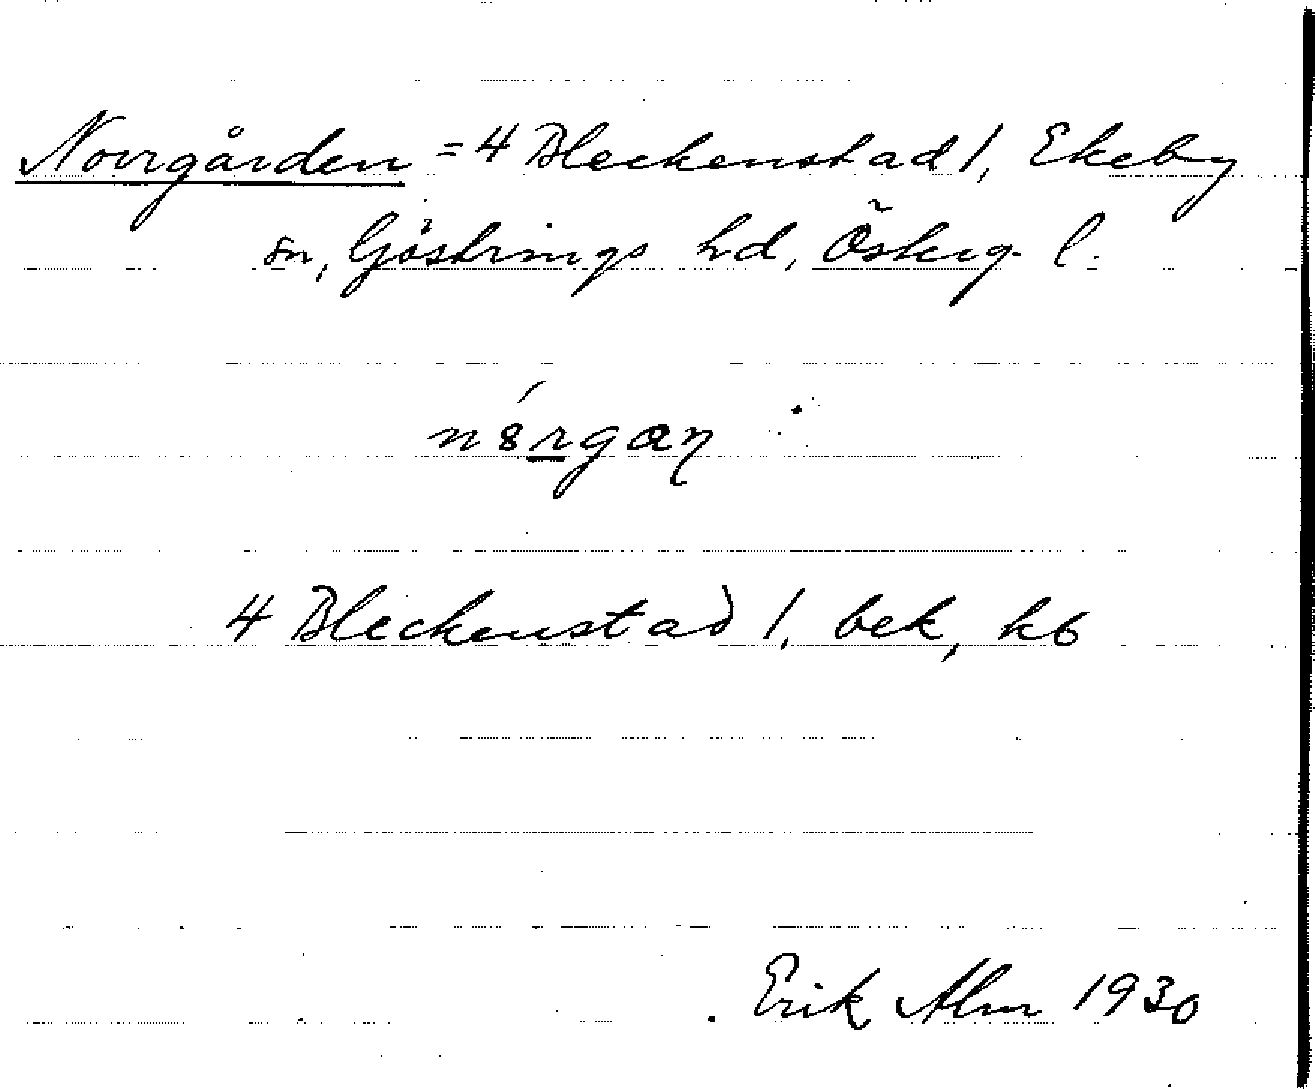 Norrgården = 4 Bleckenstad 1, Ekeby
sn, Göstrings hd, Östergl.
4 Bleckenstad 1, bek, kb
Erik Alm 1930